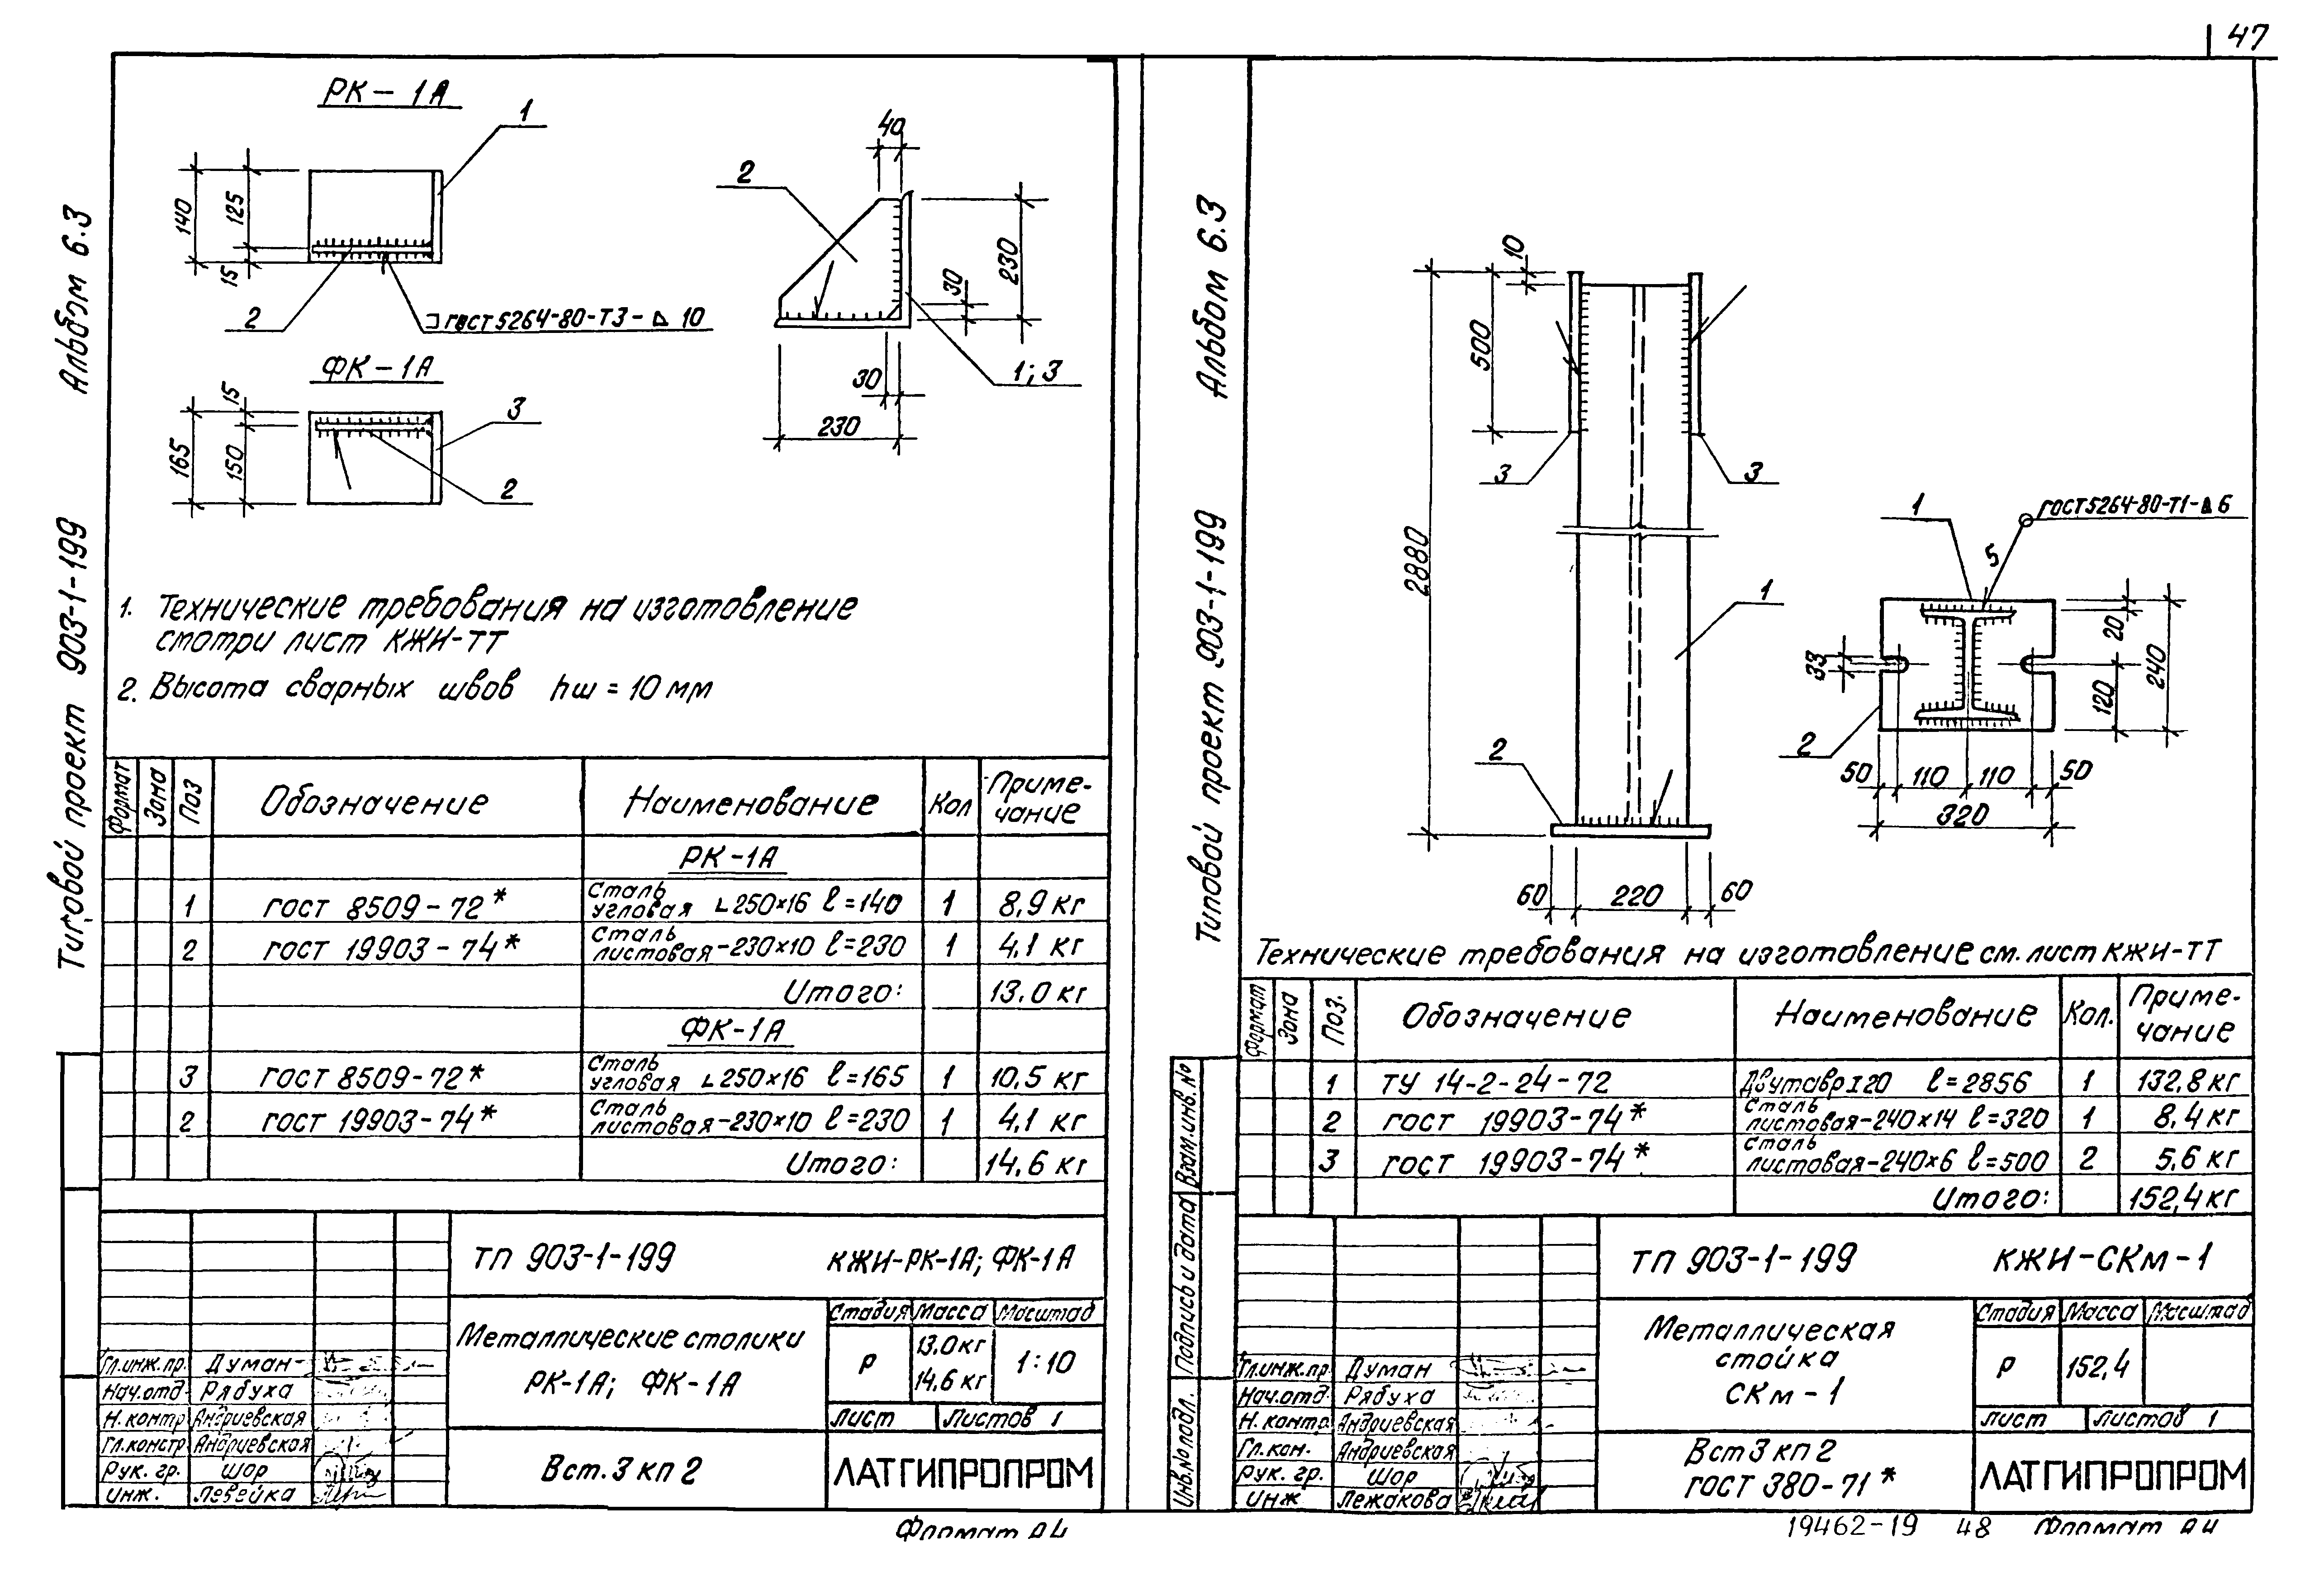 47
Альбом 6.3
Типовой проект 903-1-199
РК-1А
1
140
125
15
2
ГОСТ 5264-80-Т3-⊿ 10
ФК-1А
15
165
150
3
2
40
2
230
30
1; 3
30
230
1. Технические требования на изготовление
смотри лист КЖИ-ТТ
2. Высота сварных швов hш = 10 мм
Формат Зона Поз Обозначение Наименование Кол Приме-
чание
РК-1А
1 ГОСТ 8509-72* Сталь угловая ∟250×16 ℓ=140 1 8,9 кг
2 ГОСТ 19903-74* Сталь листовая-230×10 ℓ=230 1 4,1 кг
Итого: 13,0 кг
ФК-1А
3 ГОСТ 8509-72* Сталь угловая ∟250×16 ℓ=165 1 10,5 кг
2 ГОСТ 19903-74* Сталь листовая-230×10 ℓ=230 1 4,1 кг
Итого: 14,6 кг
ТП 903-1-199 КЖИ-РК-1А; ФК-1А
Металлические столики
РК-1А; ФК-1А
Стадия Масса Масштаб
Р 13,0кг 14,6 кг 1:10
Лист Листов 1
Гл.инж.пр. Думан
Нач.отд. Рябуха
Н.контр Андриевская
Гл.констр Андриевская
Рук. гр. Шор
Инж. Левейка
Вст.3 кп 2
ЛАТГИПРОПРОМ
Формат А4
Альбом 6.3
Типовой проект 903-1-199
10
500
2880
3
3
1
2
60 220 60
1
ГОСТ 5264-80-Т1-⊿6
5
33
20
240
120
2
50 110 110 50
320
Технические требования на изготовление см. лист КЖИ-ТТ
Формат Зона Поз. Обозначение Наименование Кол. Приме-
чание
1 ТУ 14-2-24-72 Двутавр I20 ℓ=2856 1 132,8 кг
2 ГОСТ 19903-74* Сталь листовая-240×14 ℓ=320 1 8,4 кг
3 ГОСТ 19903-74* Сталь листовая-240×6 ℓ=500 2 5,6 кг
Итого: 152,4 кг
Взам.инв.№
Подпись и дата
Инв.№ подл.
ТП 903-1-199 КЖИ-СКм-1
Металлическая
стойка
СКм-1
Стадия Масса Масштаб
Р 152,4
Лист Листов 1
Гл.инж.пр Думан
Нач.отд. Рябуха
Н.контр. Андриевская
Гл.кон. Андриевская
Рук. гр. Шор
Инж Лежакова
Вст 3 кп 2
ГОСТ 380-71*
ЛАТГИПРОПРОМ
19462-19 48 Формат А4